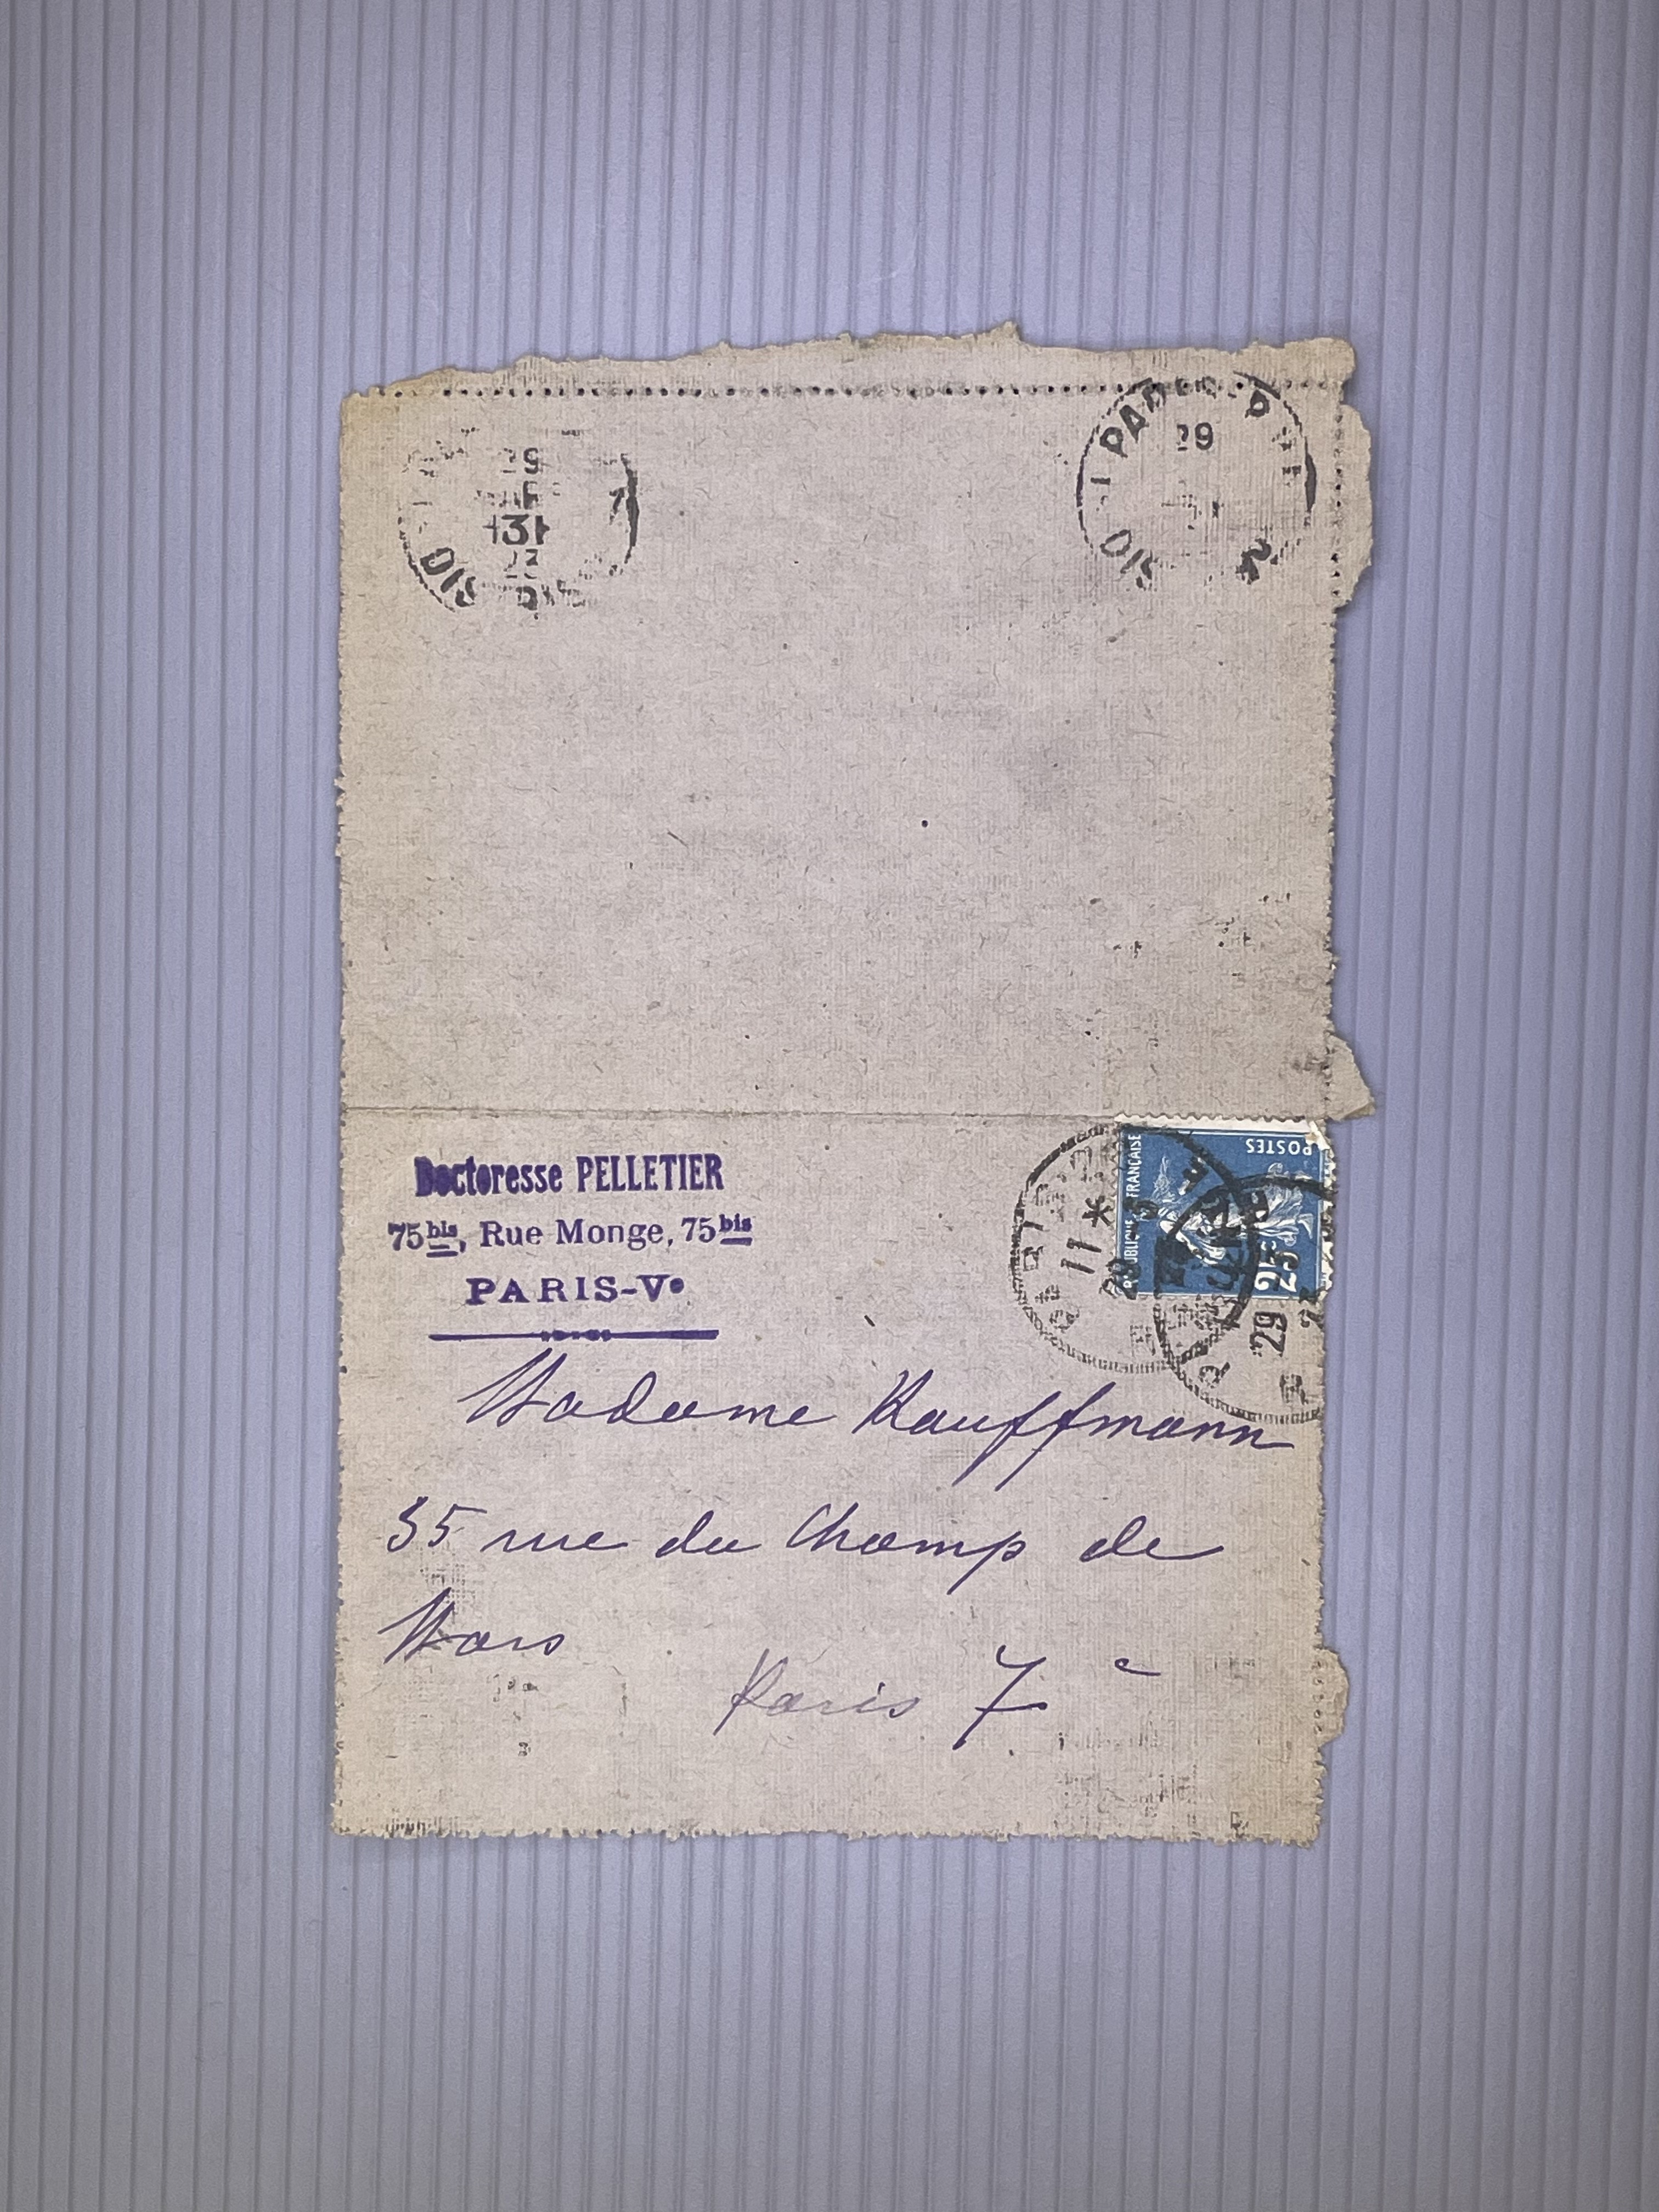 29
13H
29
Doctoresse PELLETIER
75bis, Rue Monge, 75bis
PARIS-Ve
RÉPUBLIQUE FRANÇAISE
POSTES
25c
11 *
29
29
Madame Kauffmann
35 rue du Champ de
Mars
Paris 7e